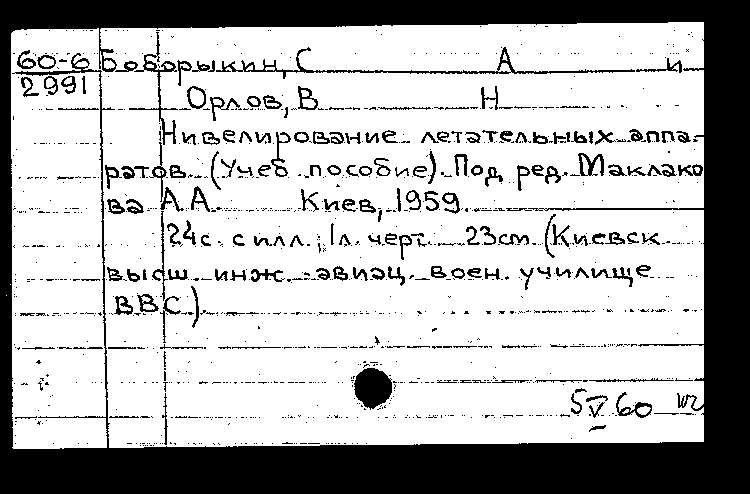 60-6 Боборыкин, С А и
2991
Орлов, В Н
Нивелирование летательных аппа-
ратов (Учеб пособие). Под ред. Маклако
ва А А. Киев, 1959.
24с. с илл.; 1л. черт 23см (Киевск
высш. инж. авиац. воен. училище
ВВС).
5 V 60